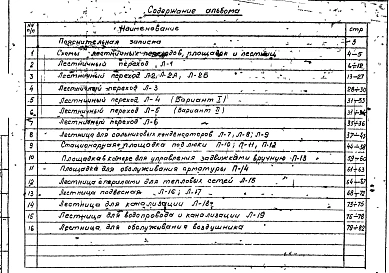 Содержание альбома
№№ п/п Наименование стр
Пояснительная записка 3
1 Схемы лестничных переходов, площадок и лестниц 4-5
2 Лестничный переход Л-1 6÷12
3 Лестничный переход Л-2, Л-2А, Л-2Б 13-27
4 Лестничный переход Л-3 28÷30
5 Лестничный переход Л-4 (Вариант I) 31-33
6 Лестничный переход Л-5 (Вариант II)
7 Лестничный переход Л-6 35÷36
8 Лестница для сальниковых конденсаторов Л-7, Л-8, Л-9
9 Стационарная площадка под люки П-10, П-11, П-12
10 Площадка в камере для управления задвижками вручную П-13 59-60
11 Площадка для обслуживания арматуры П-14 61÷63
12 Лестница с перилами для тепловых сетей Л-15
13 Лестница подвесная Л-16; Л-17 68÷72
14 Лестница для канализации Л-18 73÷75
15 Лестница для водопровода и канализации Л-19 76-78
16 Лестница для обслуживания воздушника 79÷82